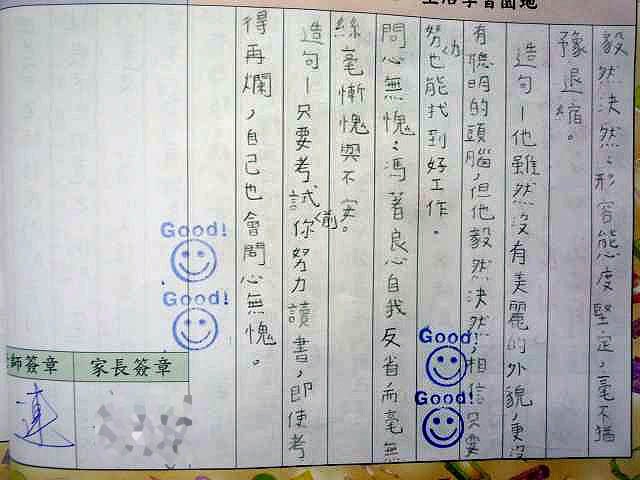 生活學習園地
毅然決然：形容態度堅定，毫不猶
豫退縮。
造句－他雖然沒有美麗的外貌，更沒
有聰明的頭腦，但他毅然決然，相信只要
努力也能找到好工作。
問心無愧：馮著良心自我反省而毫無
絲毫慚愧與不安。
造句－只要考試前你努力讀書，即使考
得再爛，自己也會問心無愧。
Good!
Good!
Good!
Good!
師簽章
家長簽章
連